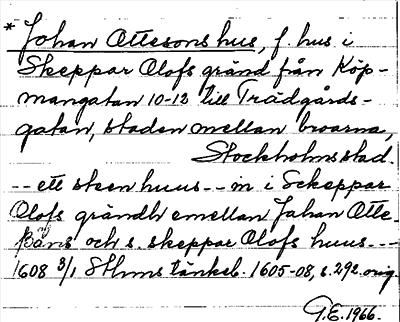 * Johan Ottesons hus, f. hus i
Skeppar Olofs gränd från Köp-
mangatan 10-12 till Trädgårds-
gatan, staden mellan broarna,
Stockholms stad.
-- ett steen huus -- m i Sckeppar
Olofs grändh emellan Jahan Otte-
ßåns och s. skeppar Olofs huus ---
1608 3/1 Sthms tänkeb. 1605-08, s. 292 orig.
G.E. 1966.